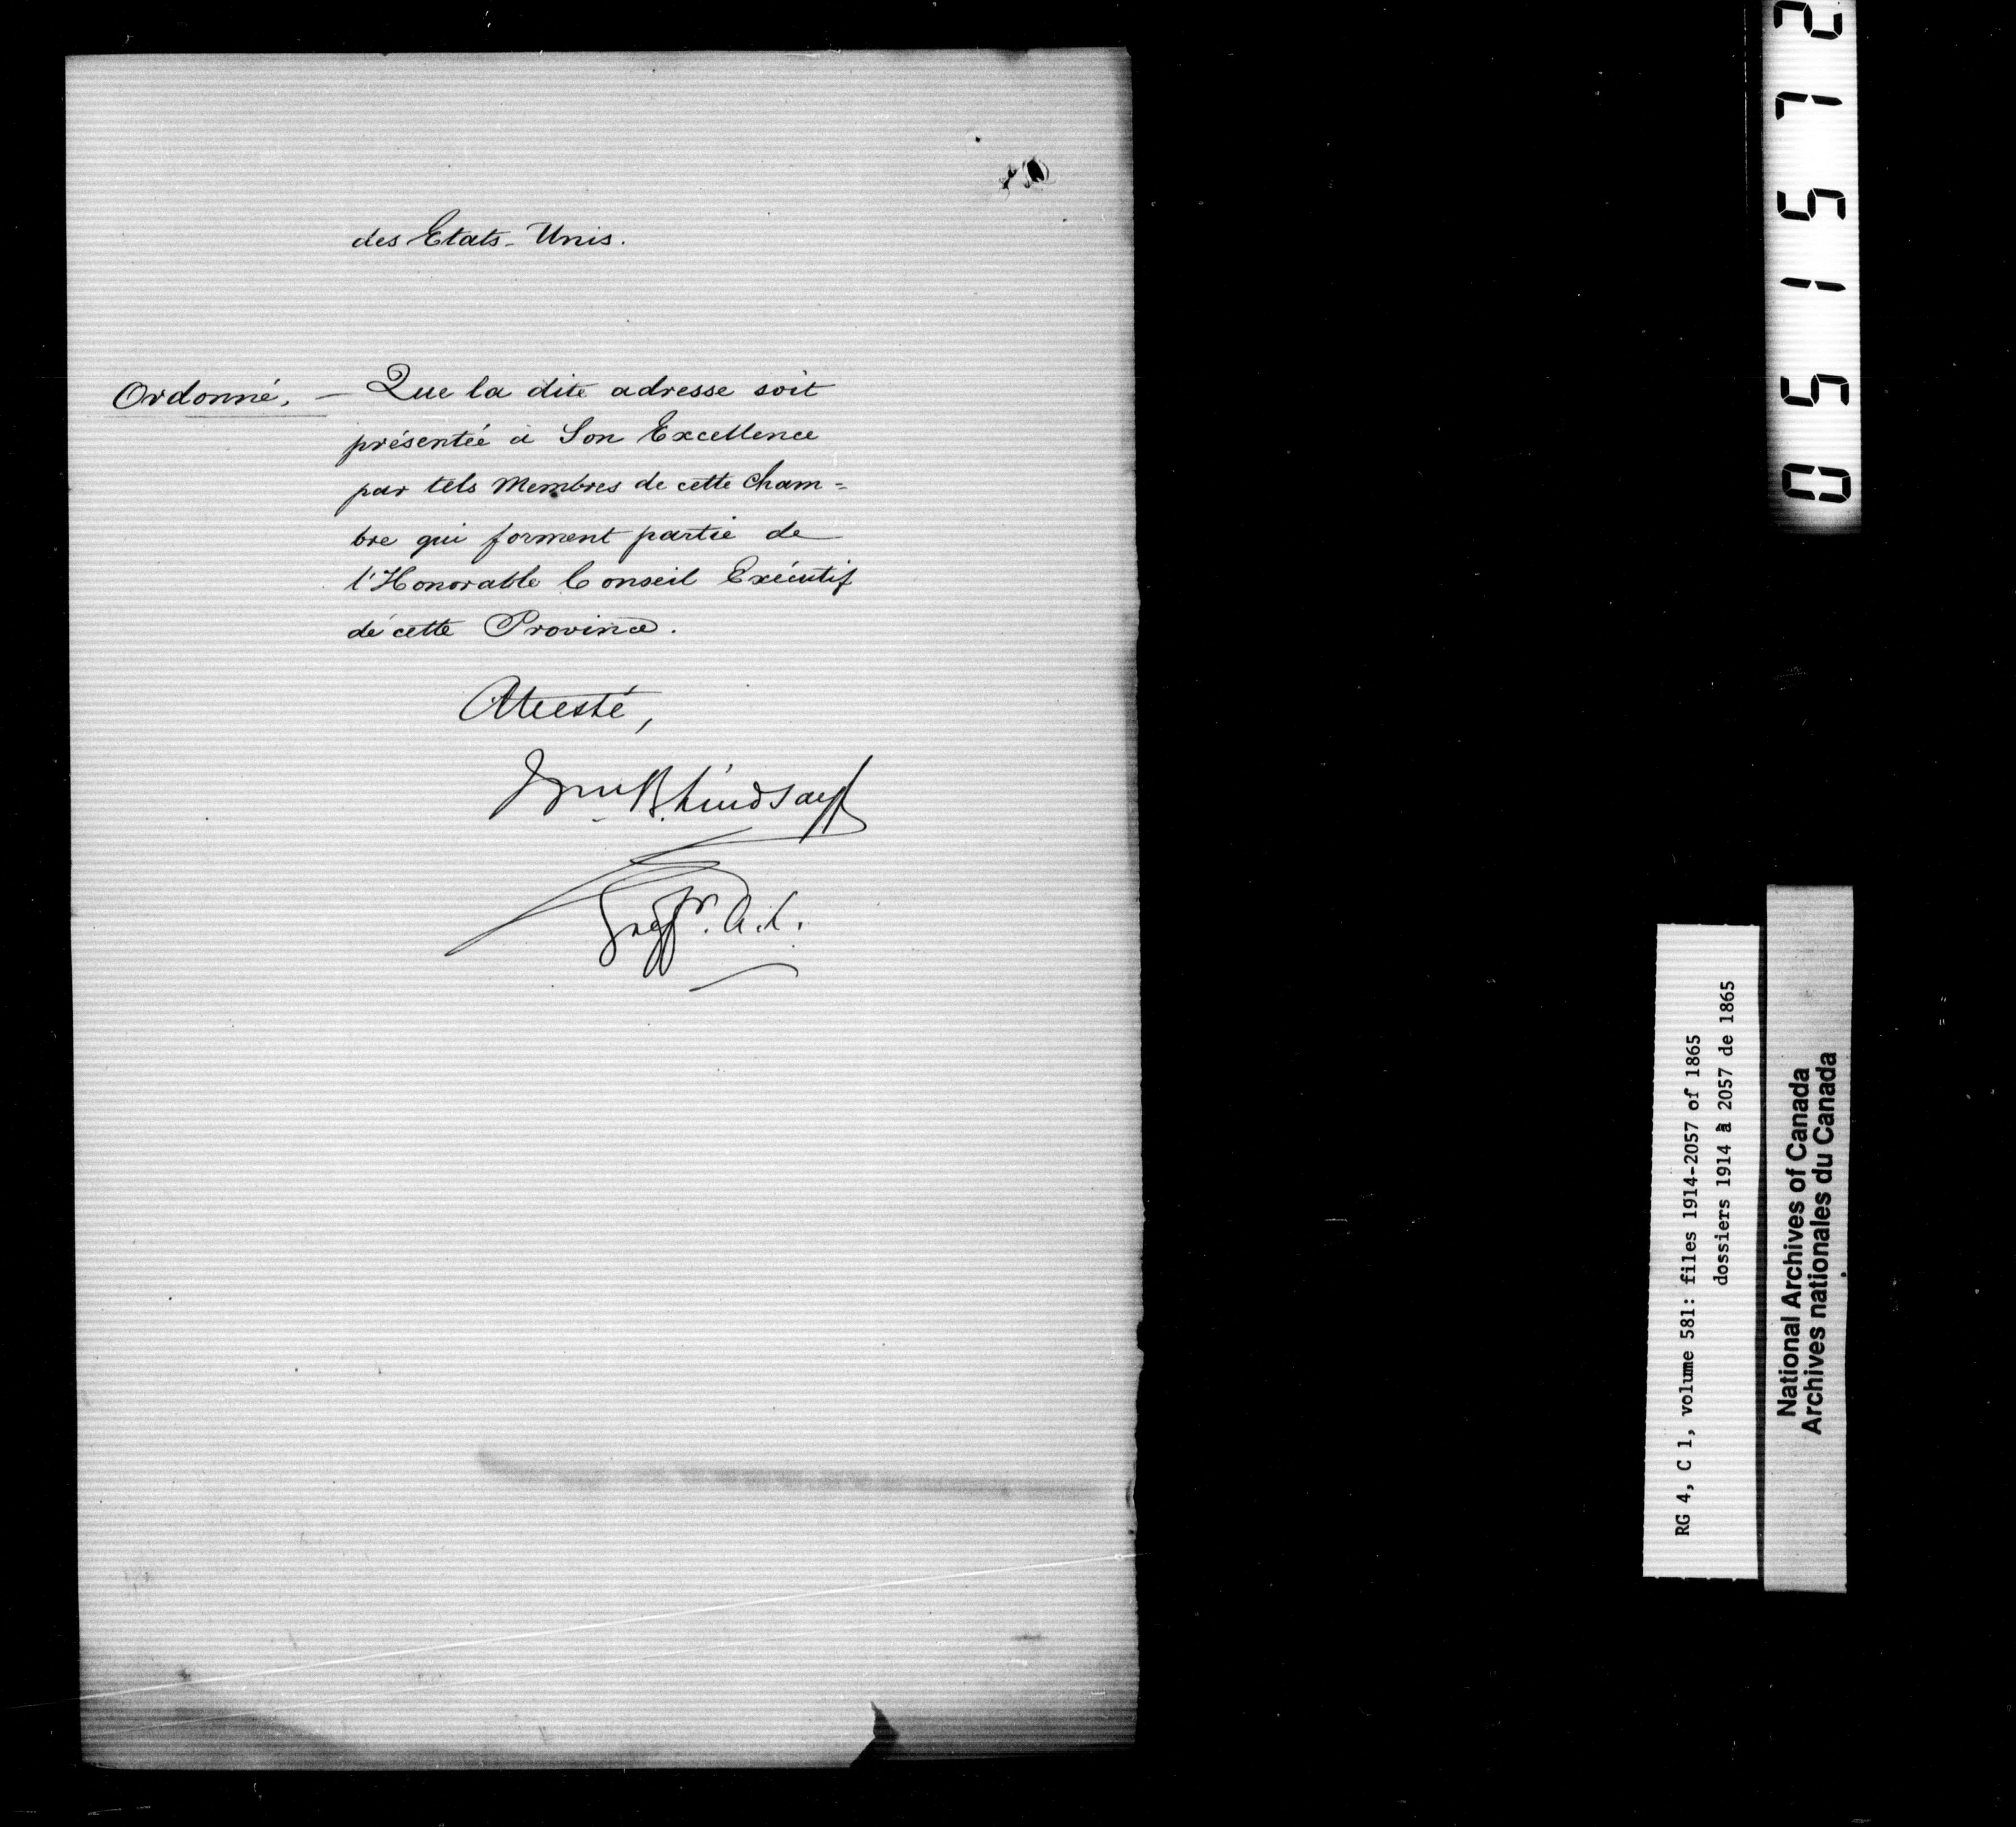 des Etats-Unis.
Ordonné, — Que la dite adresse soit
présentée à Son Excellence
par tels Membres de cette Cham=
bre qui forment partie de
l'Honorable Conseil Exécutif
de cette Province.
Attesté,
Wm B. Lindsay
Greffr. A.L.
RG 4, C 1, volume 581: files 1914-2057 of 1865
dossiers 1914 à 2057 de 1865
National Archives of Canada
Archives nationales du Canada